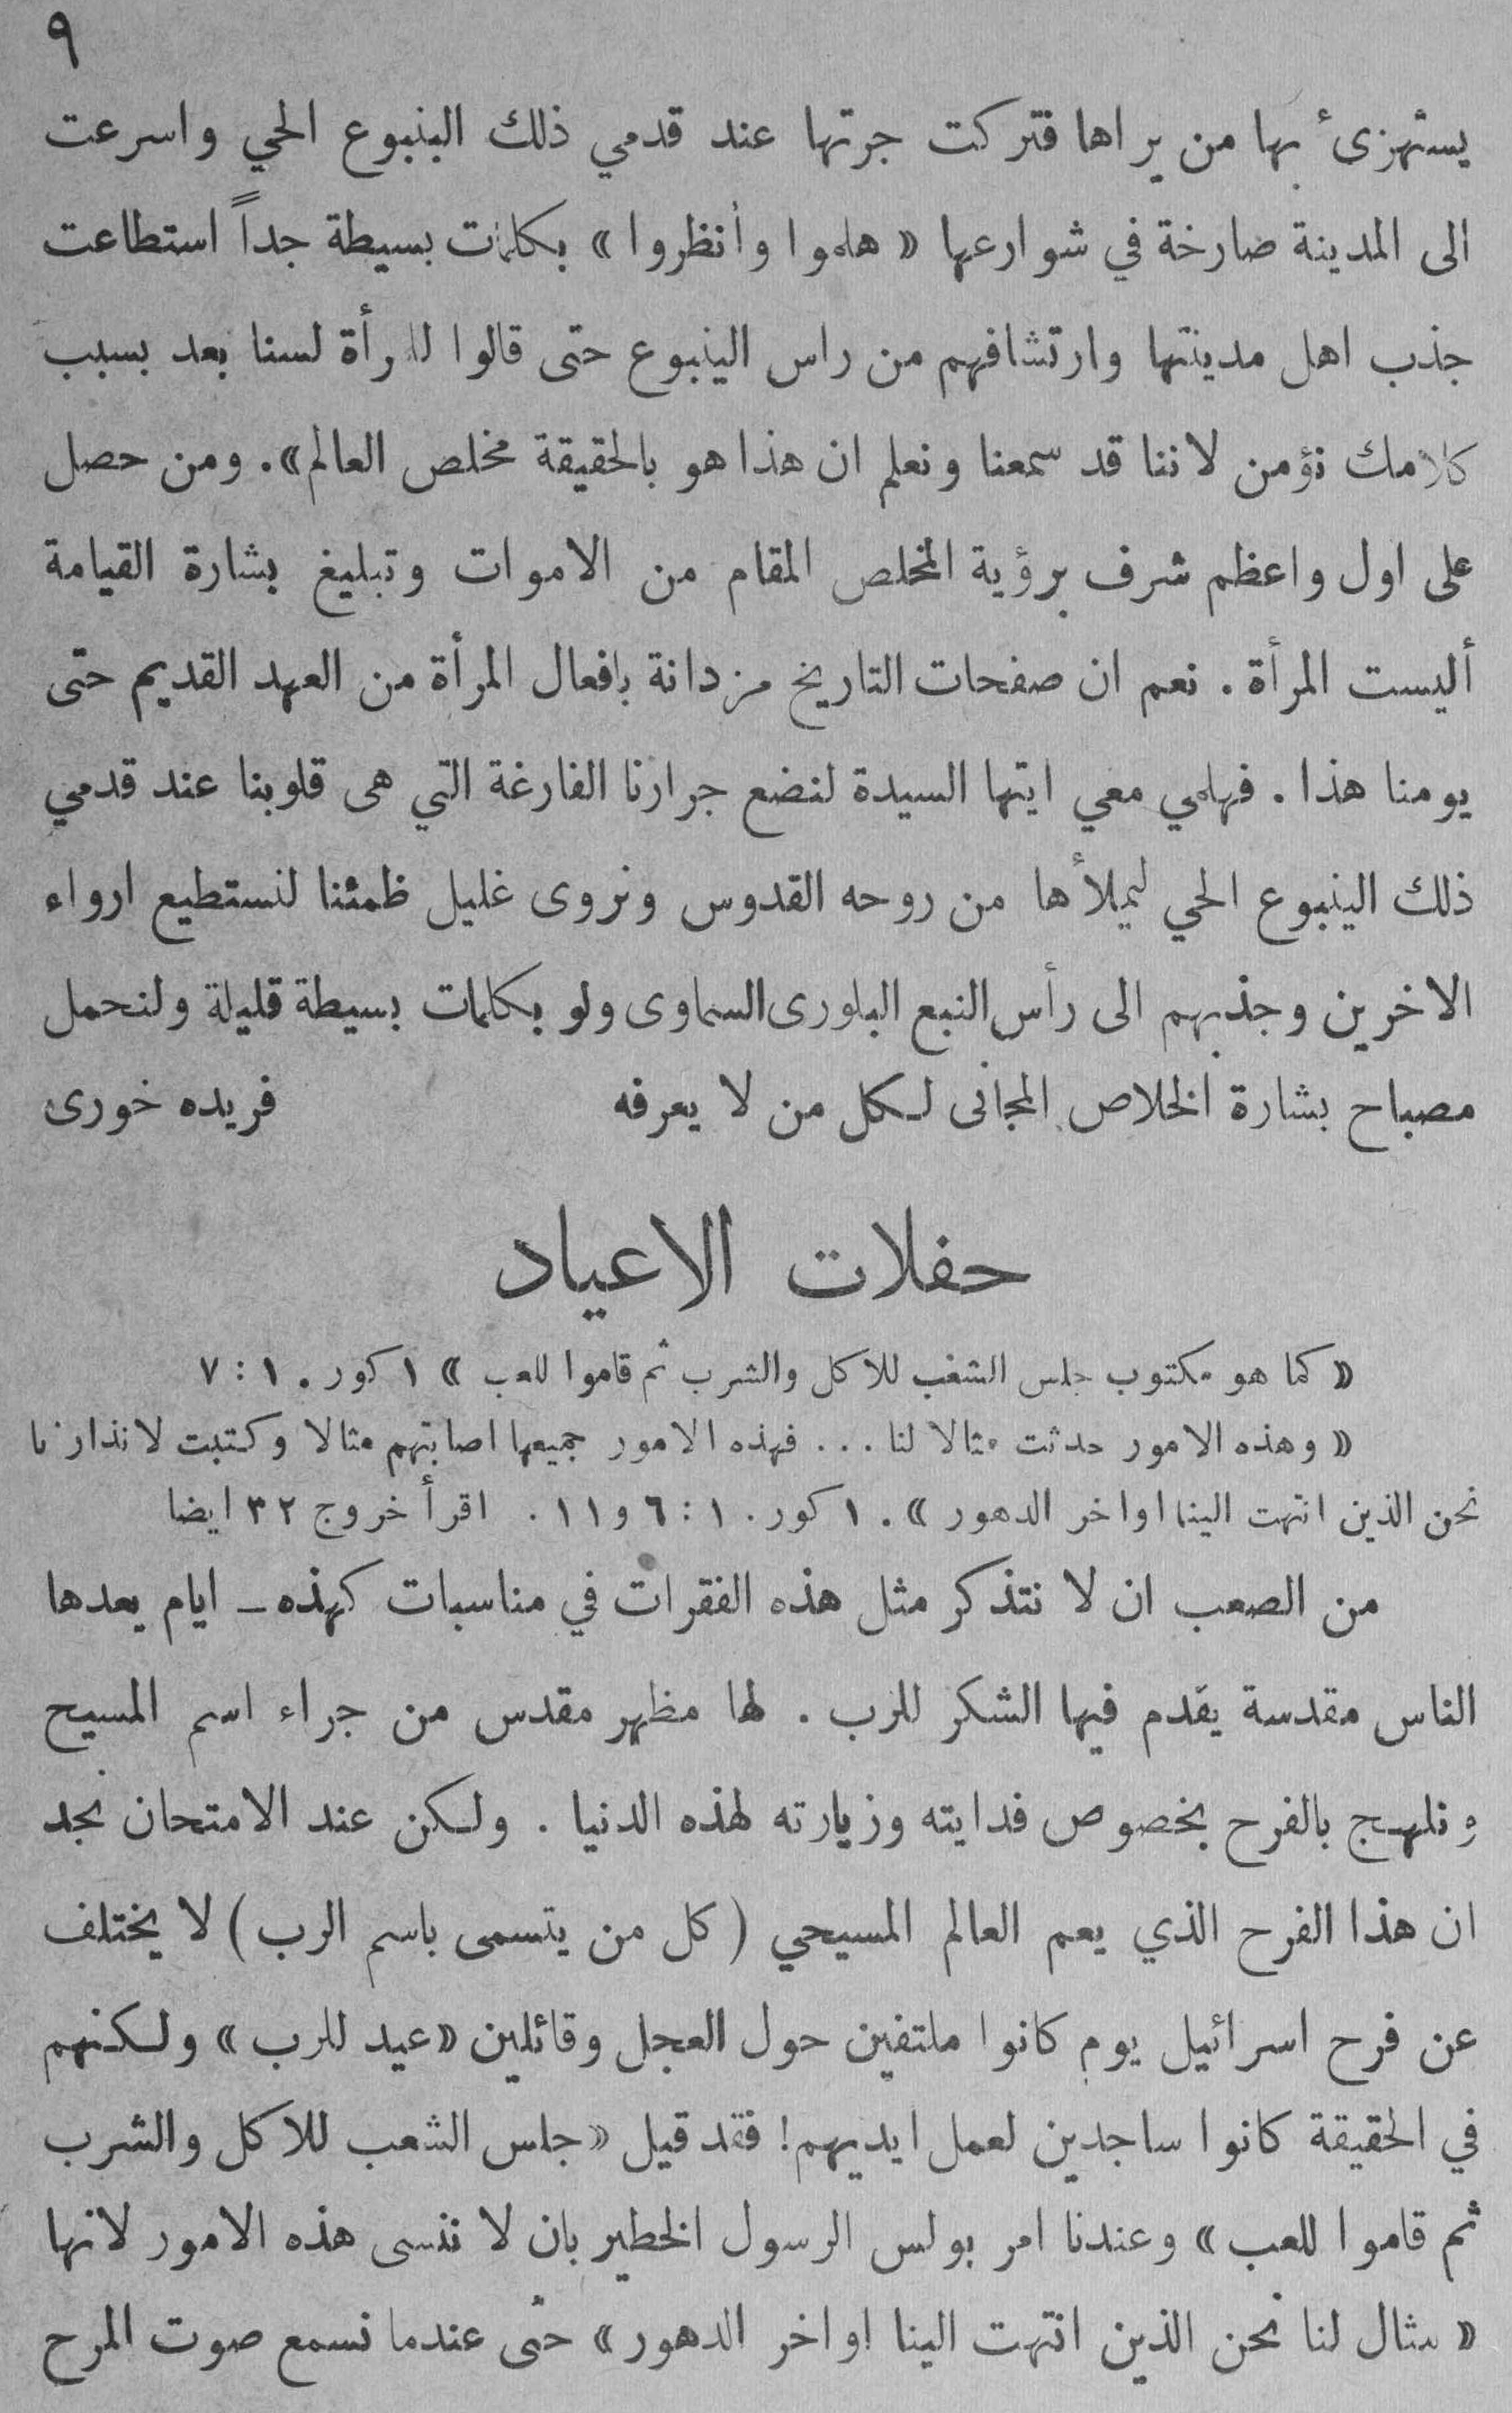 ٩
يستهزئ بها من يراها فتركت جرتها عند قدمي ذلك الينبوع الحي واسرعت
الى المدينة صارخة في شوارعها « هلموا وأنظروا » بكلمات بسيطة جداً استطاعت
جذب اهل مدينتها وارتشافهم من راس الينبوع حتى قالوا للمرأة لسنا بعد بسبب
كلامك نؤمن لاننا قد سمعنا ونعلم ان هذا هو بالحقيقة مخلص العالم». ومن حصل
على اول واعظم شرف برؤية المخلص المقام من الاموات وتبليغ بشارة القيامة
أليست المرأة . نعم ان صفحات التاريخ مزدانة بافعال المرأة من العهد القديم حتى
يومنا هذا . فهلمي معي ايتها السيدة لنضع جرارنا الفارغة التي هى قلوبنا عند قدمي
ذلك الينبوع الحي ليملأها من روحه القدوس ونروى غليل ظمئنا لنستطيع ارواء
الاخرين وجذبهم الى رأس النبع البلورى السماوى ولو بكلمات بسيطة قليلة ولنحمل
مصباح بشارة الخلاص المجانى لكل من لا يعرفه فريده خورى
حفلات الاعياد
« كما هو مكتوب جلس الشعب للاكل والشرب ثم قاموا للعب » ١ كور ١٠ : ٧
« وهذه الامور حدثت مثالا لنا ... فهذه الامور جميعها اصابتهم مثالا وكتبت لانذارنا
نحن الذين انتهت الينا اواخر الدهور » . ١ كور ١٠ : ٦ و١١ . اقرأ خروج ٣٢ ايضا
من الصعب ان لا نتذكر مثل هذه الفقرات في مناسبات كهذه ـ ايام يعدها
الناس مقدسة يقدم فيها الشكر للرب . لها مظهر مقدس من جراء اسم المسيح
ونلهج بالفرح بخصوص فدايته وزيارته لهذه الدنيا . ولكن عند الامتحان نجد
ان هذا الفرح الذي يعم العالم المسيحي ( كل من يتسمى باسم الرب ) لا يختلف
عن فرح اسرائيل يوم كانوا ملتفين حول العجل وقائلين « عيد للرب » ولكنهم
في الحقيقة كانوا ساجدين لعمل ايديهم! فقد قيل « جلس الشعب للاكل والشرب
ثم قاموا للعب » وعندنا امر بولس الرسول الخطير بان لا ننسى هذه الامور لانها
« مثال لنا نحن الذين انتهت الينا اواخر الدهور » حتى عندما نسمع صوت المرح